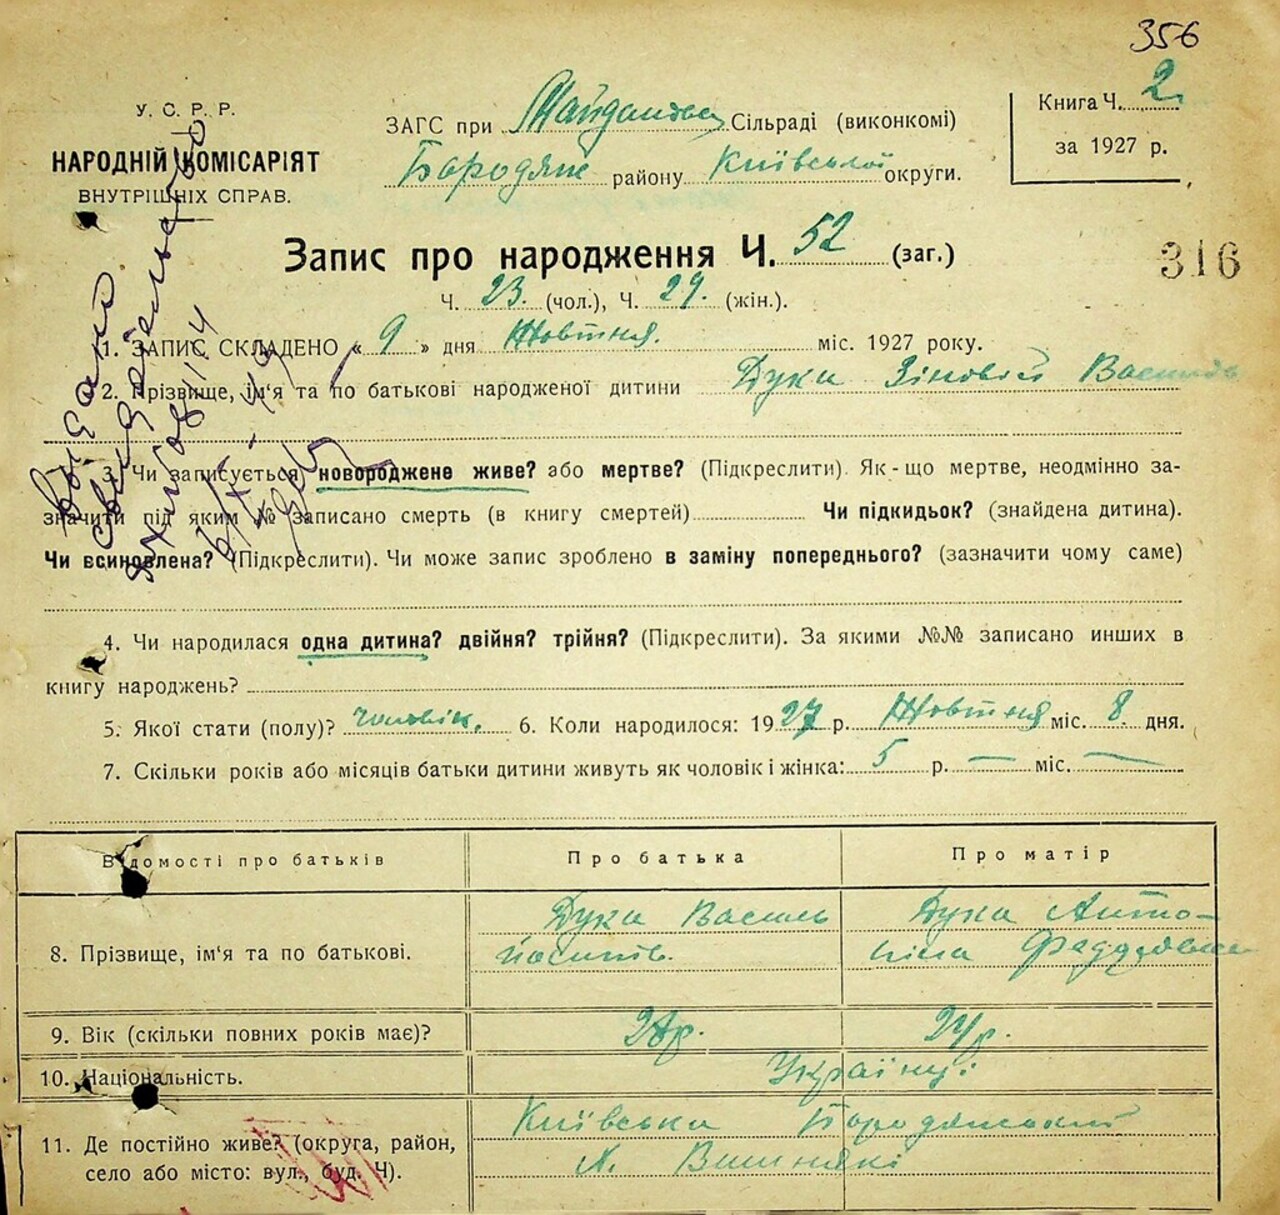 356
У. С. Р. Р.
НАРОДНІЙ КОМІСАРІЯТ
ВНУТРІШНІХ СПРАВ.
ЗАГС при Сільраді (виконкомі)
Бородян району Київської округи.
Книга Ч. 2
за 1927 р.
Запис про народження Ч. 52 (заг.)
316
Ч. 23. (чол.), Ч. 29. (жін.).
1. ЗАПИС СКЛАДЕНО « 9 » дня Жовтня. міс. 1927 року.
2. Прізвище, ім'я та по батькові народженої дитини Дука Зіновій
3. Чи записується новороджене живе? або мертве? (Підкреслити). Як-що мертве, неодмінно за-
значити під яким № записано смерть (в книгу смертей) Чи підкидьок? (знайдена дитина).
Чи всиновлена? (Підкреслити). Чи може запис зроблено в заміну попереднього? (зазначити чому саме)
4. Чи народилася одна дитина? двійня? трійня? (Підкреслити). За якими №№ записано инших в
книгу народжень?
5. Якої стати (полу)? чоловік. 6. Коли народилося: 1927 р. Жовтня міс. 8 дня.
7. Скільки років або місяців батьки дитини живуть як чоловік і жінка: 5 р. — міс. —
Відомості про батьків
Про батька
Про матір
8. Прізвище, ім'я та по батькові.
Дука Василь
Дука Анто-
ніна
9. Вік (скільки повних років має)?
24р.
10. Національність.
Українці
11. Де постійно живе? (округа, район,
село або місто: вул., буд. Ч).
Київська Бородянський
х. Вишняки